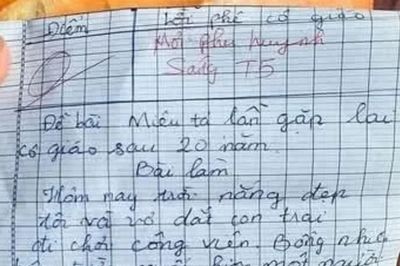 Điểm
Lời phê cô giáo
Mời phụ huynh
Sáng T5
Đề bài Miêu tả lần gặp lại
cô giáo sau 20 năm.
Bài làm
Hôm nay trời nắng đẹp
tôi và vợ dắt con trai
đi chơi công viên. Bỗng nhiên
một người